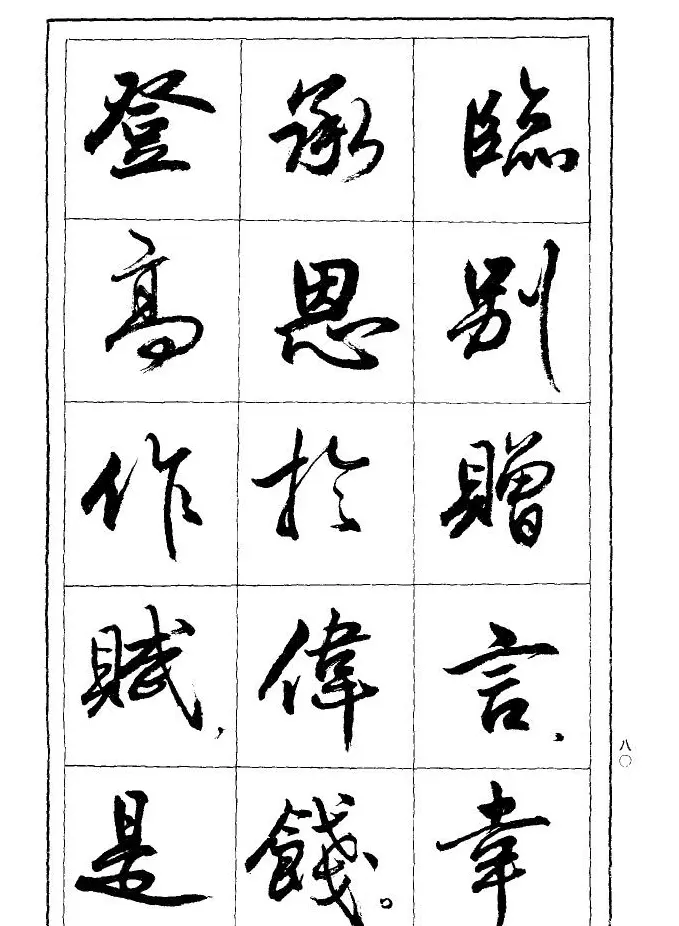 臨別贈言，幸
承恩於偉餞。
登高作賦，是
八〇